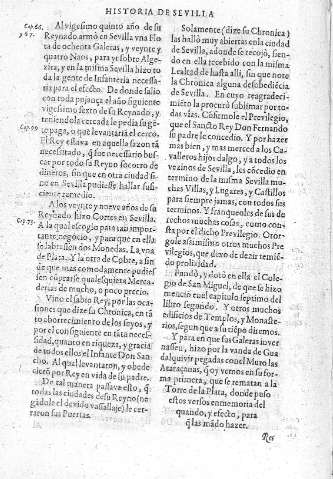 HISTORIA DE SEVILLA
Al vigesimo quinto año de su
Reynado armò en Sevilla vna Flo
ta de ochenta Galeras, y veynte y
quatro Naos, para yr sobre Alge-
zira, y en la misma Sevilla hizo to
da la gente de Infanteria necessa-
ria para el efecto. De donde salio
con toda pujança el año siguiente
vigesimo sexto de su Reynado, y
teniendola cercada le pedia
pago, o que levantaria el cerco.
El Rey estava en aquella sazon tã
necessitado, q̃ fue necessario bus-
car por todo su Reyno socorro de
dineros, sin que en otra ciudad si
no en Sevilla pudiesse hallar sufi
ciente remedio.
A los veynte y nueve años de su
Reynado hizo Cortes en Sevilla.
A la qual escogio para tan impor-
tante negocio, y para que en ella
se labrassen dos Monedas. La vna
de Plata. Y la otra de Cobre, a fin
de que mas comodamente pudies
sen cõprarse qualesquiera Merca-
derias de mucho, o poco precio.
Vino el sabio Rey, por las oca-
siones que dize su Chronica, en tã
to aborrecimiento de los suyos, y
por el consiguiente en tãta neces-
sidad, quanto en riqueza, y gracia
de todos ellos el Infante Don San-
cho. Al qual levantaron, y obede-
cierõ por Rey en vida de su padre.
De tal manera passava esto, q̃
todas las ciudades de su Reyno (ne
gãdole el devido vassallaje) le cer-
raron sus Puertas.
Solamente (dize su Chronica)
las hallò muy abiertas en la ciudad
de Sevilla, adonde se recojò, sien-
do en ella recebido con la misma
Lealtad de hasta alli, sin que note
la Chronica alguna desobediẽcia
de Sevilla. En cuyo reagradeci-
miẽto la procurò sublimar por to-
das vias. Cõfirmole el Previlegio,
que el Sancto Rey Don Fernando
su padre le concedio. Y por hazer
mas bien, y mas merced a los Ca-
valleros hijos dalgo, y a todos los
vezinos de Sevilla, les cõcedio en
termino de la misma Sevilla mu-
chas Villas, y Lugares, y Castillos
para siempre jamas, con todos sus
terminos. Y franquezas de sus de
rechos muchas cosas, como cons-
ta por el dicho Previlegio. Otor-
gole assimismo otros muchos Pre
vilegios, que dexo de dezir temiẽ-
do prolixidad.
Fundò, y dotò en ella el Cole-
gio de San Miguel, de que se hizo
mencio en el capitulo septimo del
libro segundo. Y otros muchos
edificios de Templos, y Monaste-
rios, segun que a su tiẽpo diremos.
Y para en que las Galeras inver
nassen, hizo por la vanda de Gua
dalquivir pegadas con el Muro las
Ataraçanas, q̃ oy vemos en su for-
ma primera, que se rematan a la
Torre de la Plata, donde puso
estos versos en memoria del
quando, y efecto, para
q̃ las mãdo hazer.